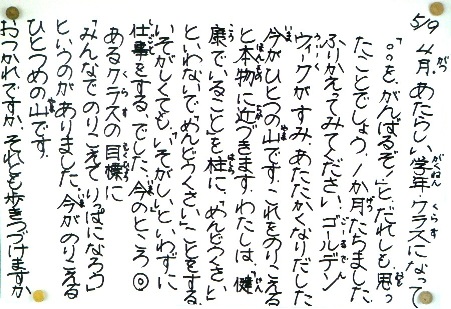 5/9 4月、あたらしい学年・クラスになって、
「○○を、がんばるぞ!」と、だれしも思っ
たことでしょう。1か月たちました。
ふりかえてみてください。ゴールデン
ウィークがすみ、あたたかくなりだした
今がひとつの山です。これをのりこえる
と本物に近づきます。わたしは、「健
康でいること」を柱に、「めんどうくさい」
といわないで「めんどうくさい」ことをする、
いそがしくても、「いそがしい」といわずに
仕事をする、でした。今のところ◎
あるクラスの目標に
「みんなでのりこえてりっぱになろう」
というのがありました。今がのりこえる
ひとつめの山です。
おつかれですか、それとも歩きつづけますか